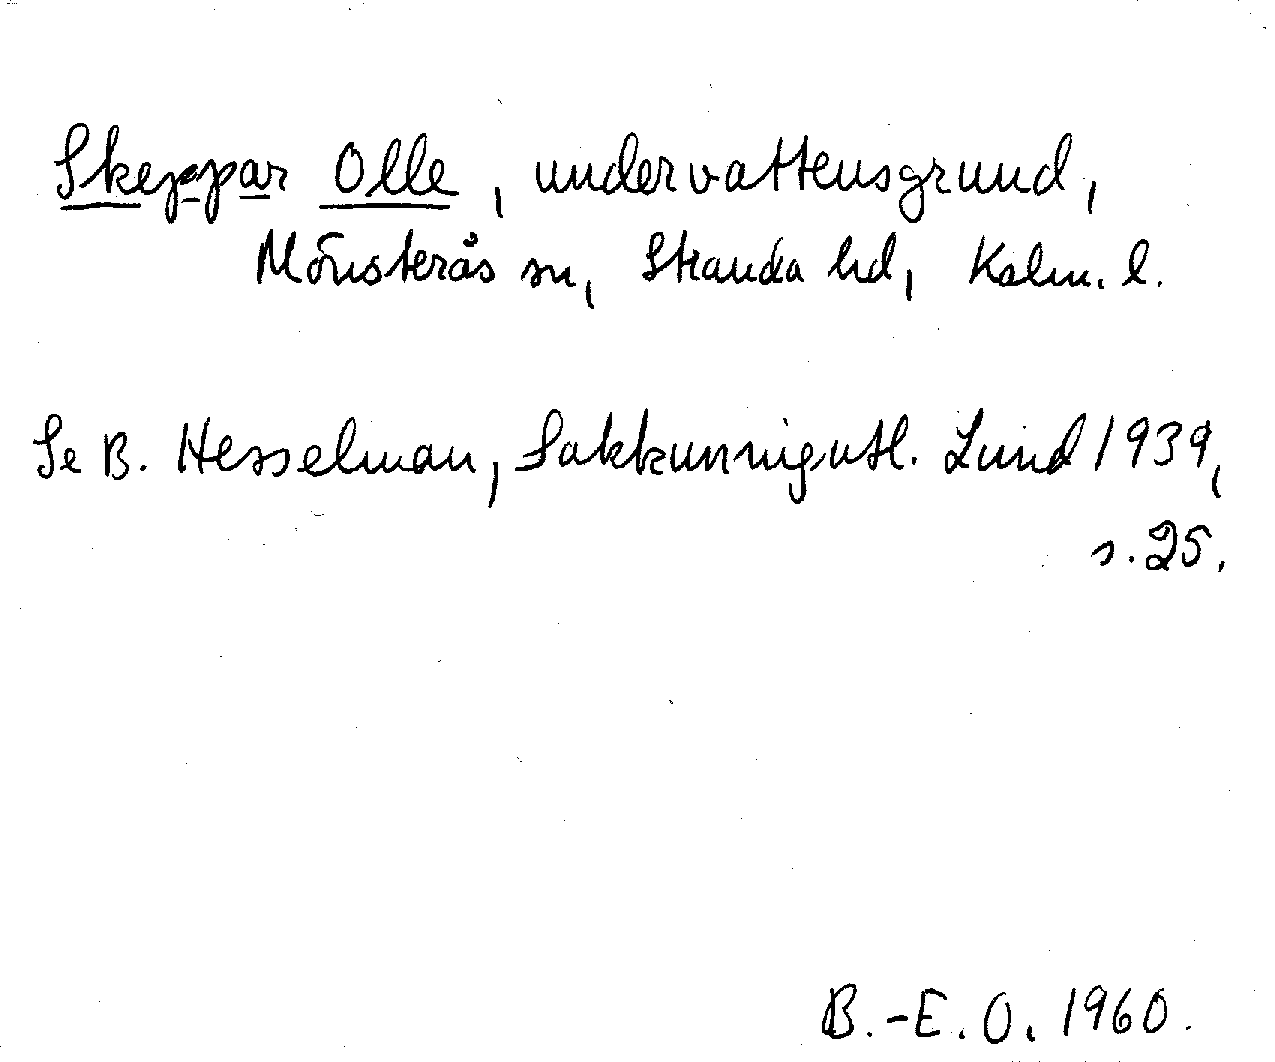 Skeppar Olle, undervattensgrund,
Mönsterås sn, Stranda hd, Kalm. l.
Se B. Hesselman, Sakkunnigutl. Lund 1939,
s. 25.
B.-E. O. 1960.